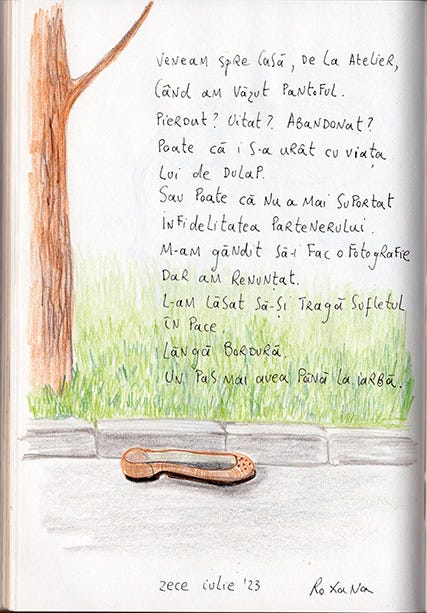 Veneam spre casă, de la atelier,
când am văzut pantoful.
Pierdut? Uitat? Abandonat?
Poate că i s-a urât cu viața
lui de dulap.
Sau poate că nu a mai suportat
infidelitatea partenerului.
M-am gândit să-i fac o fotografie
dar am renunțat.
L-am lăsat să-și tragă sufletul
în pace.
Lângă bordură.
Un pas mai avea până la iarbă.
zece iulie '23
Roxana